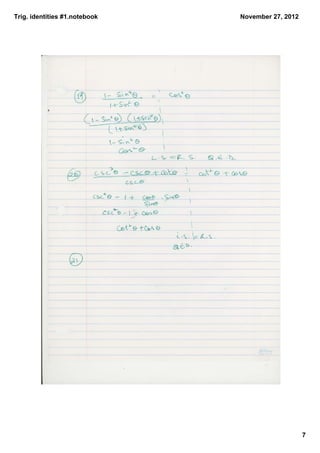 Trig. identities #1.notebook
November 27, 2012
19) 1 - Sin⁴θ = Cos²θ
1 + Sin² θ
(1 - Sin²θ) (1 + Sin²θ)
(1 + Sin²θ)
1 - Sin²θ
Cos²θ
L S = R S Q E D.
20) csc³θ - cscθ + cotθ = cot²θ + cosθ
cscθ
csc²θ - 1 + cosθ . Sinθ
Sinθ
csc²θ - 1 + cosθ
cot²θ + cosθ
L.S. = R.S.
QED.
21
7